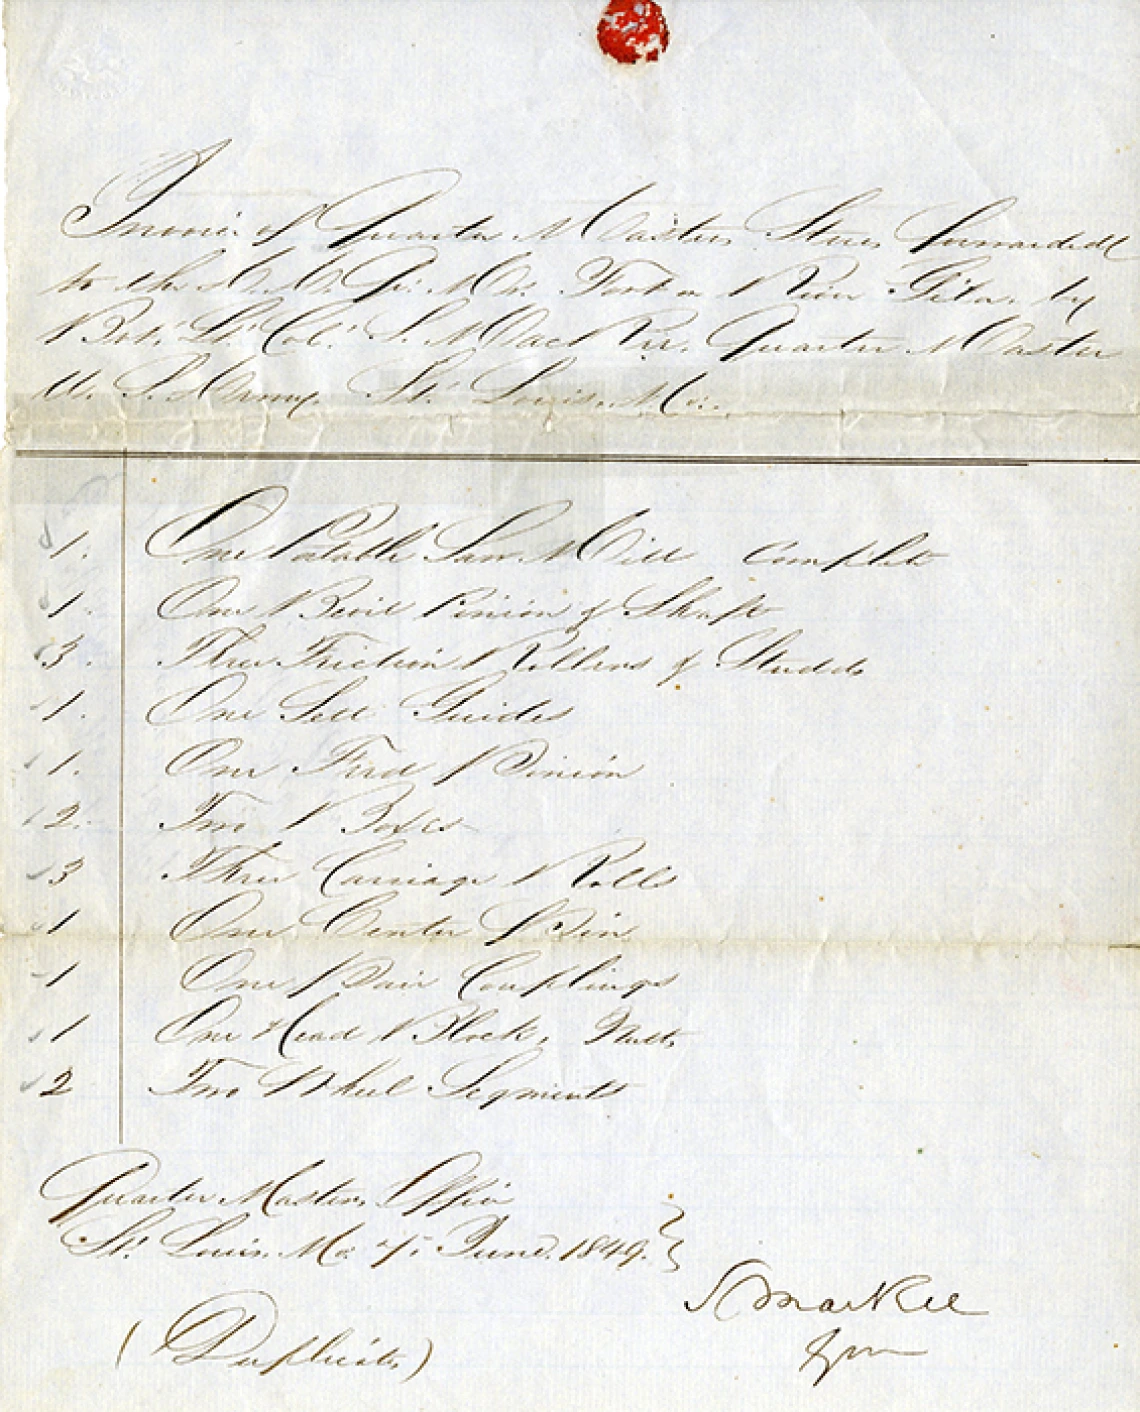 Invoice of Quarter Masters Stores forwarded
to the A. A. Qr. Mr. Fort on River Platte by
Bvt. Lt. Col. S. MacRee, Quarter Master
U. S. Army St. Louis, Mo.
1. One Portable Saw Mill complete
1. One Bevil Pinion & Shaft
3. Three Friction Rollers & Studds
1. One Sett Guides
1. One Feed Pinion
2. Two Boxes
3 Three Carriage Rolls
1 One Center Pin
1 One Pair Couplings
1 One Head Block, Nutt,
2 Two Wheel Segments
Quarter Masters Office
St. Louis, Mo. 7, June. 1849.
S MacRee
Qm
(Duplicate)